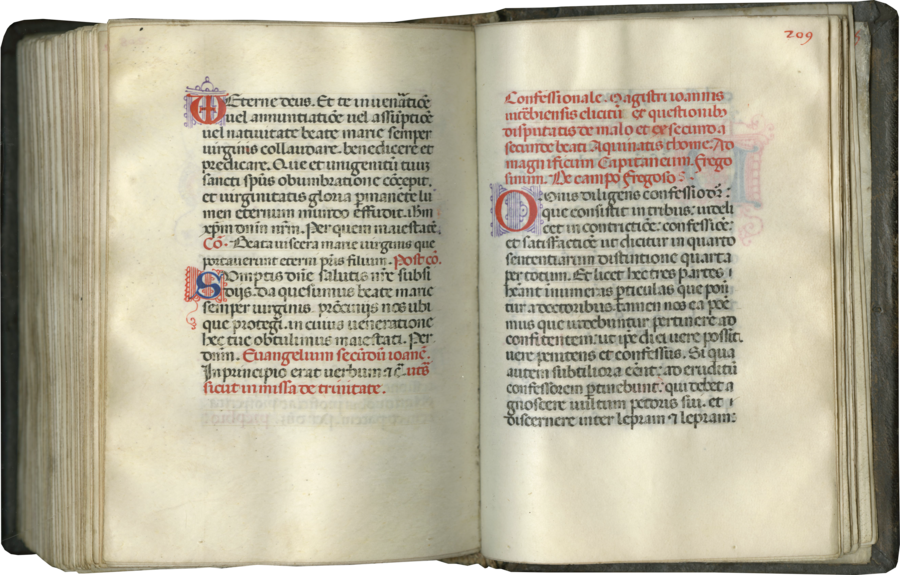 Eterne deus. Et te in uenatiõe
uel annuntiatiõe uel assũptiõe
uel natiuitate beate marie semper
uirginis collaudare. benedicere et
predicare. Que et unigenitũ tuũ
sancti spũs obumbratione cõcepit.
et uirginitatis gloria pmanẽte lu
men eternum mundo effudit. ihm
xpm dnm nrm. Per quem maiestatẽ
Cõ. Beata uiscera marie uirginis que
portauerunt eterni pris filium. Post cõ.
Sumptis dñe salutis nre subsi
dijs. da quesumus beate marie
semper uirginis. procinijs nos ubi
que protegi. in cuius ueneratione
hec tue obtulimus maiestati. Per
dnm. Euangelium secũdũ ioanẽ.
In principio erat uerbum ⁊ c̃. uts
sicut in missa de trinitate.
209
Confessionale. Magistri ioannis
uicẽbiensis elicitũ ex questionibꝰ
disputatis de malo et ex secunda
secunde beati Aquinatis thome. Ad
magnificum Capitaneum. Frego
sinum. De campo fregoso:
Omis diligens confessio dr̃:
que consistit in tribus: uideli
cet in contrictiõe: confessiõe:
et satisfactiõe ut dicitur in quarto
sententiarum distinctione quarta
per totum. Et licet hec tres partes
hẽant inumeras pticulas que ponũ
tur a doctoribus. tamen nos ea poẽ
mus que uidebuntur pertinere ad
confitentem: ut ipe dici uere possit.
uere penitens et confessus. Si qua
autem subtiliora cont̃: ad eruditũ
confessorem ptinebunt: qui debet a
gnoscere uultum pecoris sui. et
discernere inter lepram ⁊ lepram: